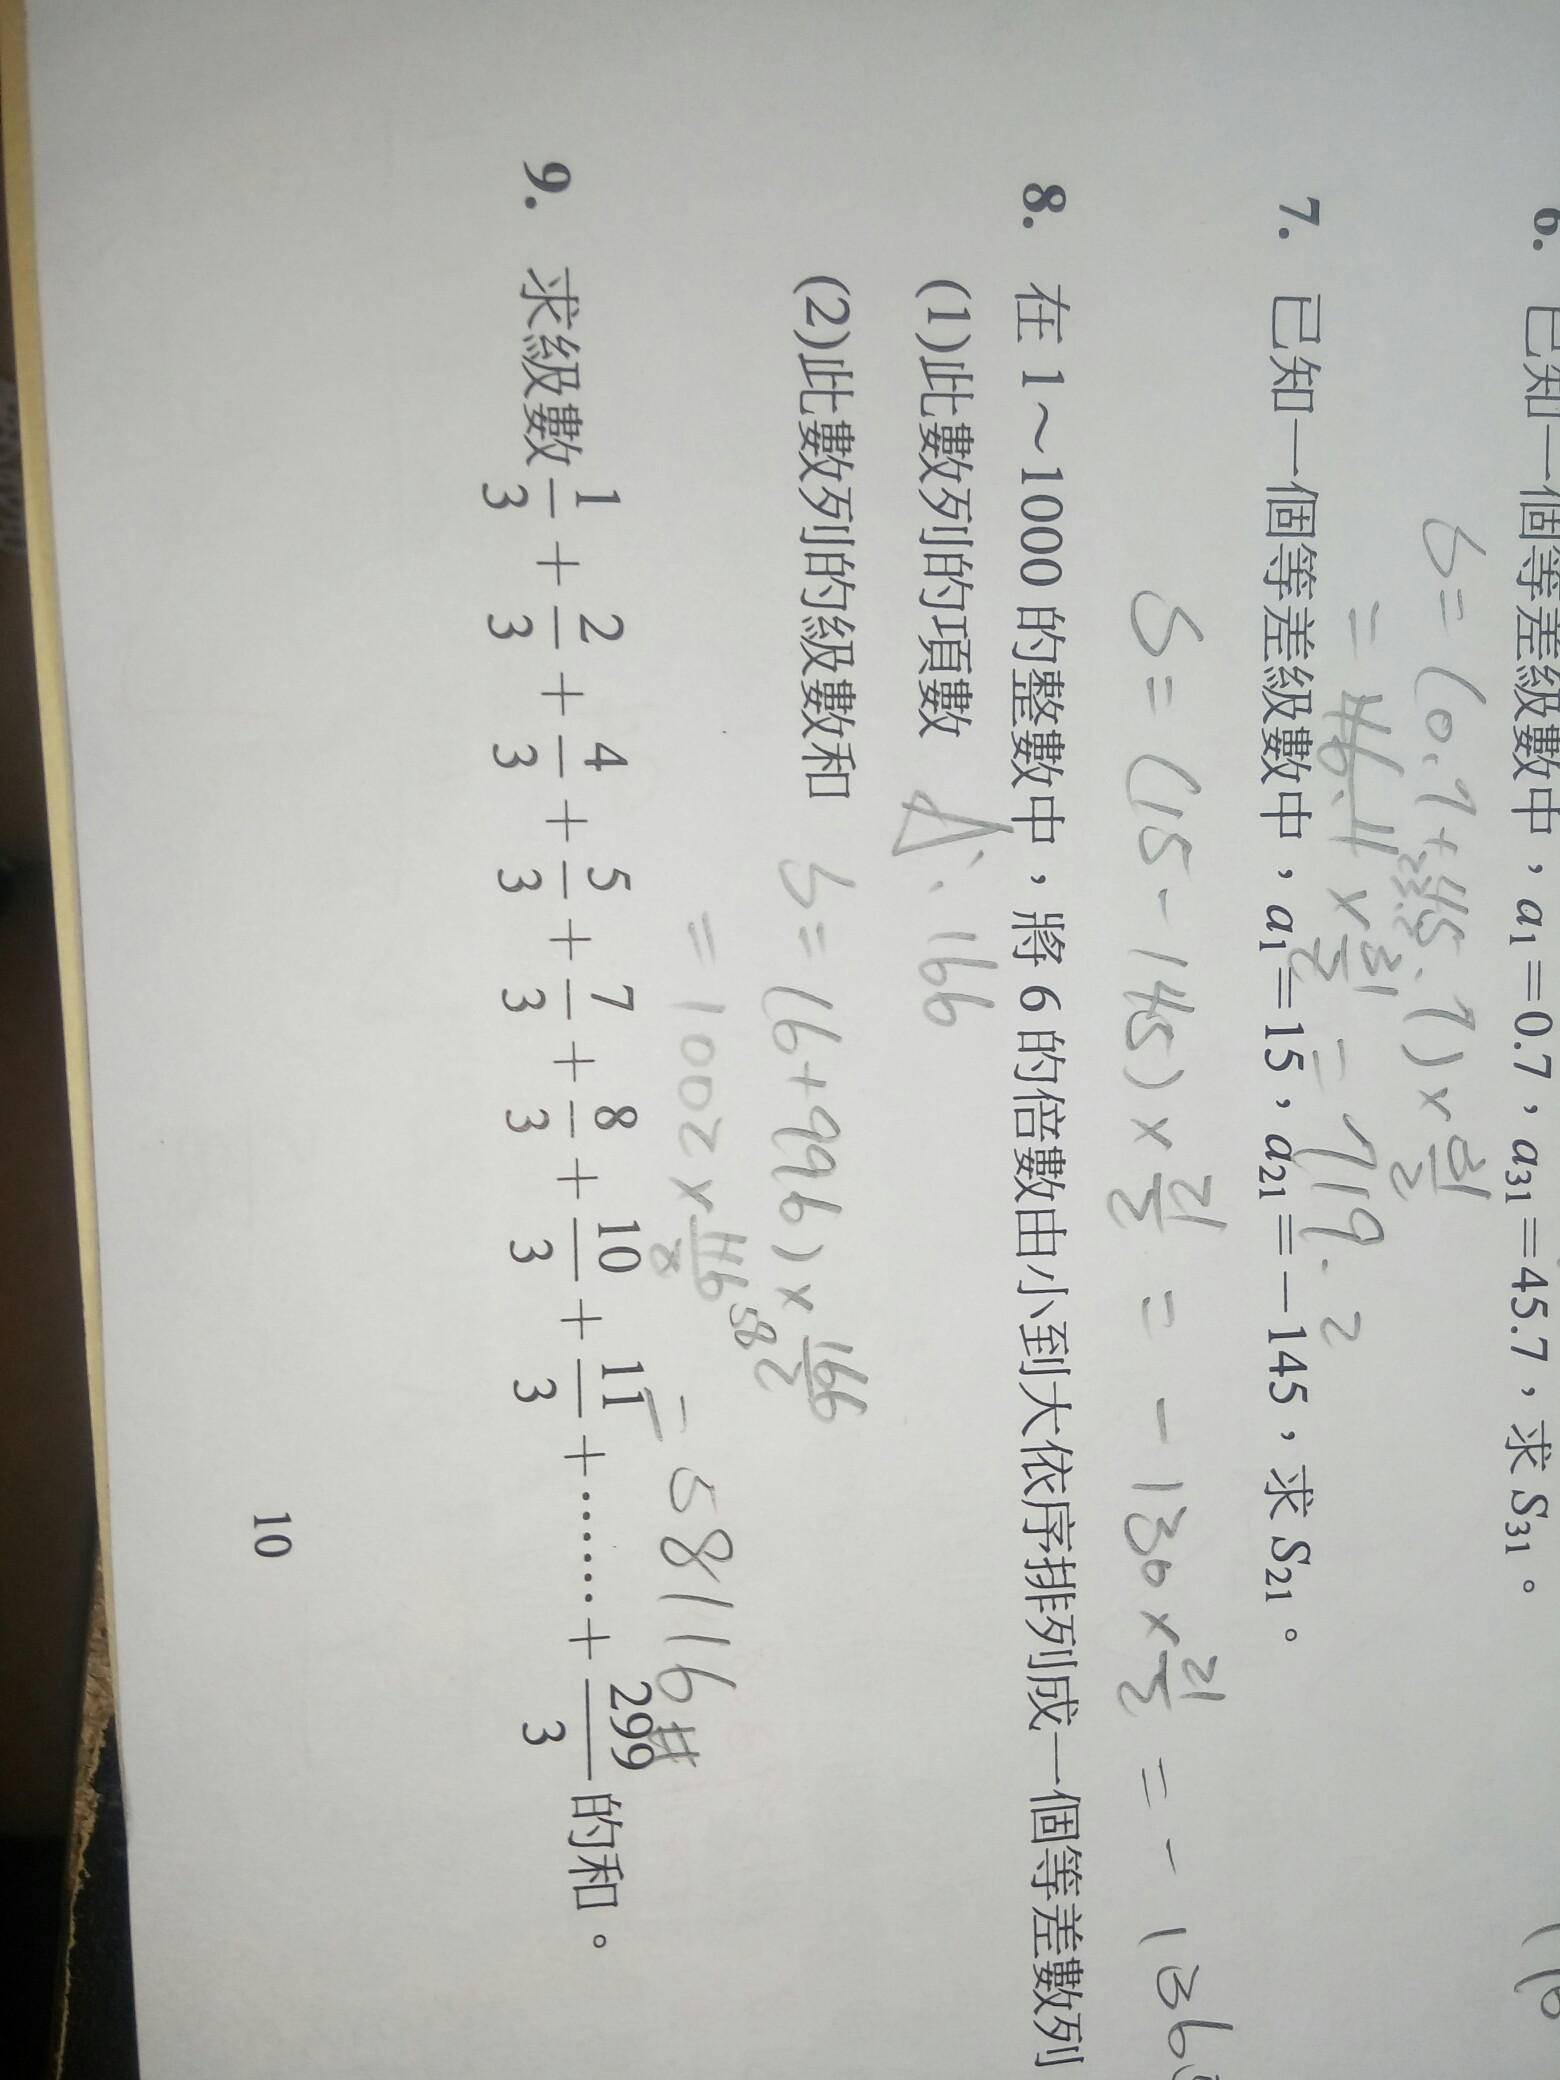 6. 已知一個等差級數中，a₁=0.7，a₃₁=45.7，求 S₃₁。
S=(0.7+45.7)×31/2
=46.4×31/2=719.2
7. 已知一個等差級數中，a₁=15，a₂₁=−145，求 S₂₁。
S=(15-145)×21/2=-130×21/2=-136
8. 在 1～1000 的整數中，將 6 的倍數由小到大依序排列成一個等差數列
(1)此數列的項數 A:166
(2)此數列的級數和 S=(6+996)×166/2
=1002×116/2 58=58116#
9. 求級數 1/3+2/3+4/3+5/3+7/3+8/3+10/3+11/3+……+299/3 的和。
10